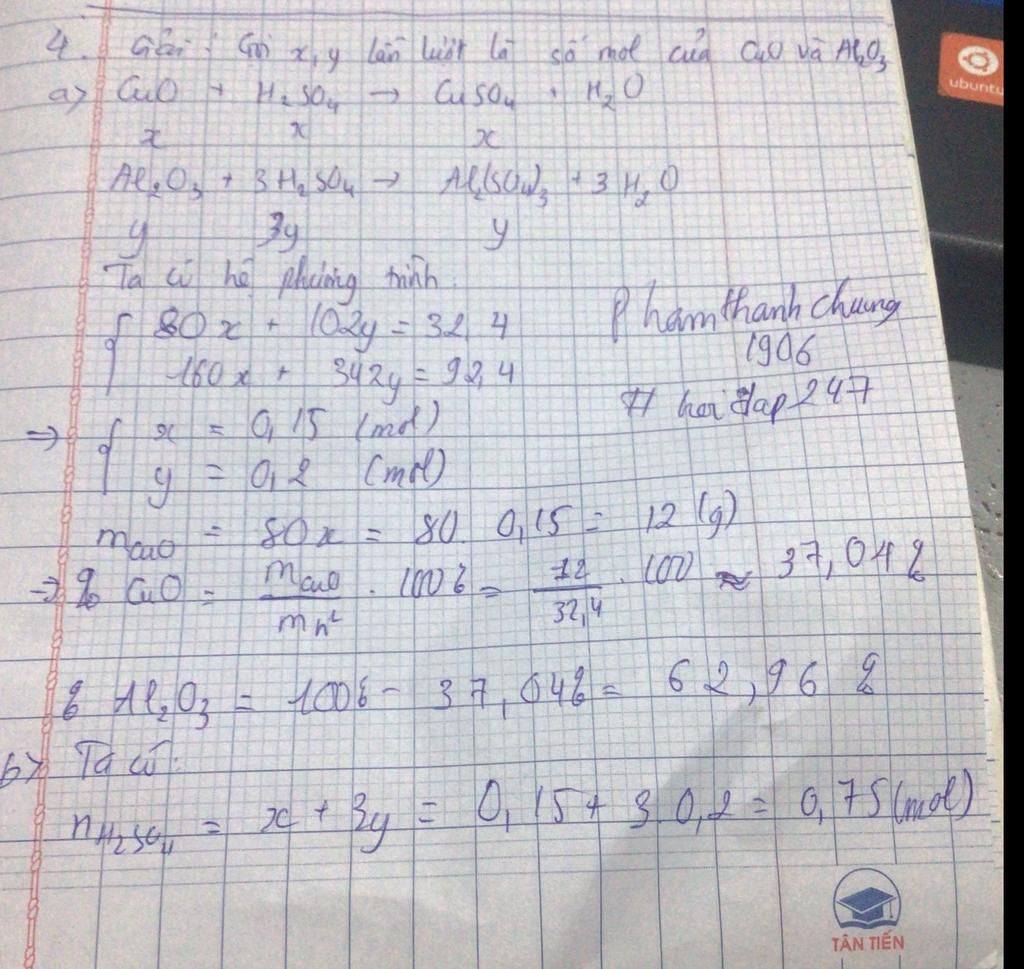 4. Giải: Gọi x, y lần lượt là số mol của CuO và Al₂O₃
a) CuO + H₂SO₄ → CuSO₄ + H₂O
x x x
Al₂O₃ + 3H₂SO₄ → Al₂(SO₄)₃ + 3H₂O
y 3y y
Ta có hệ phương trình:
{ 80x + 102y = 32,4
160x + 342y = 92,4
Phamthanhchuong
1906
# hoi đap 247
=> { x = 0,15 (mol)
y = 0,2 (mol)
mCuO = 80x = 80. 0,15 = 12 (g)
→ % CuO = mCuO / mh² . 100% = 12 / 32,4 . 100 ≈ 37,04%
% Al₂O₃ = 100% - 37,04% = 62,96 %
b) Ta có:
nH₂SO₄ = x + 3y = 0,15 + 3.0,2 = 0,75 (mol)
ubuntu
TÂN TIẾN